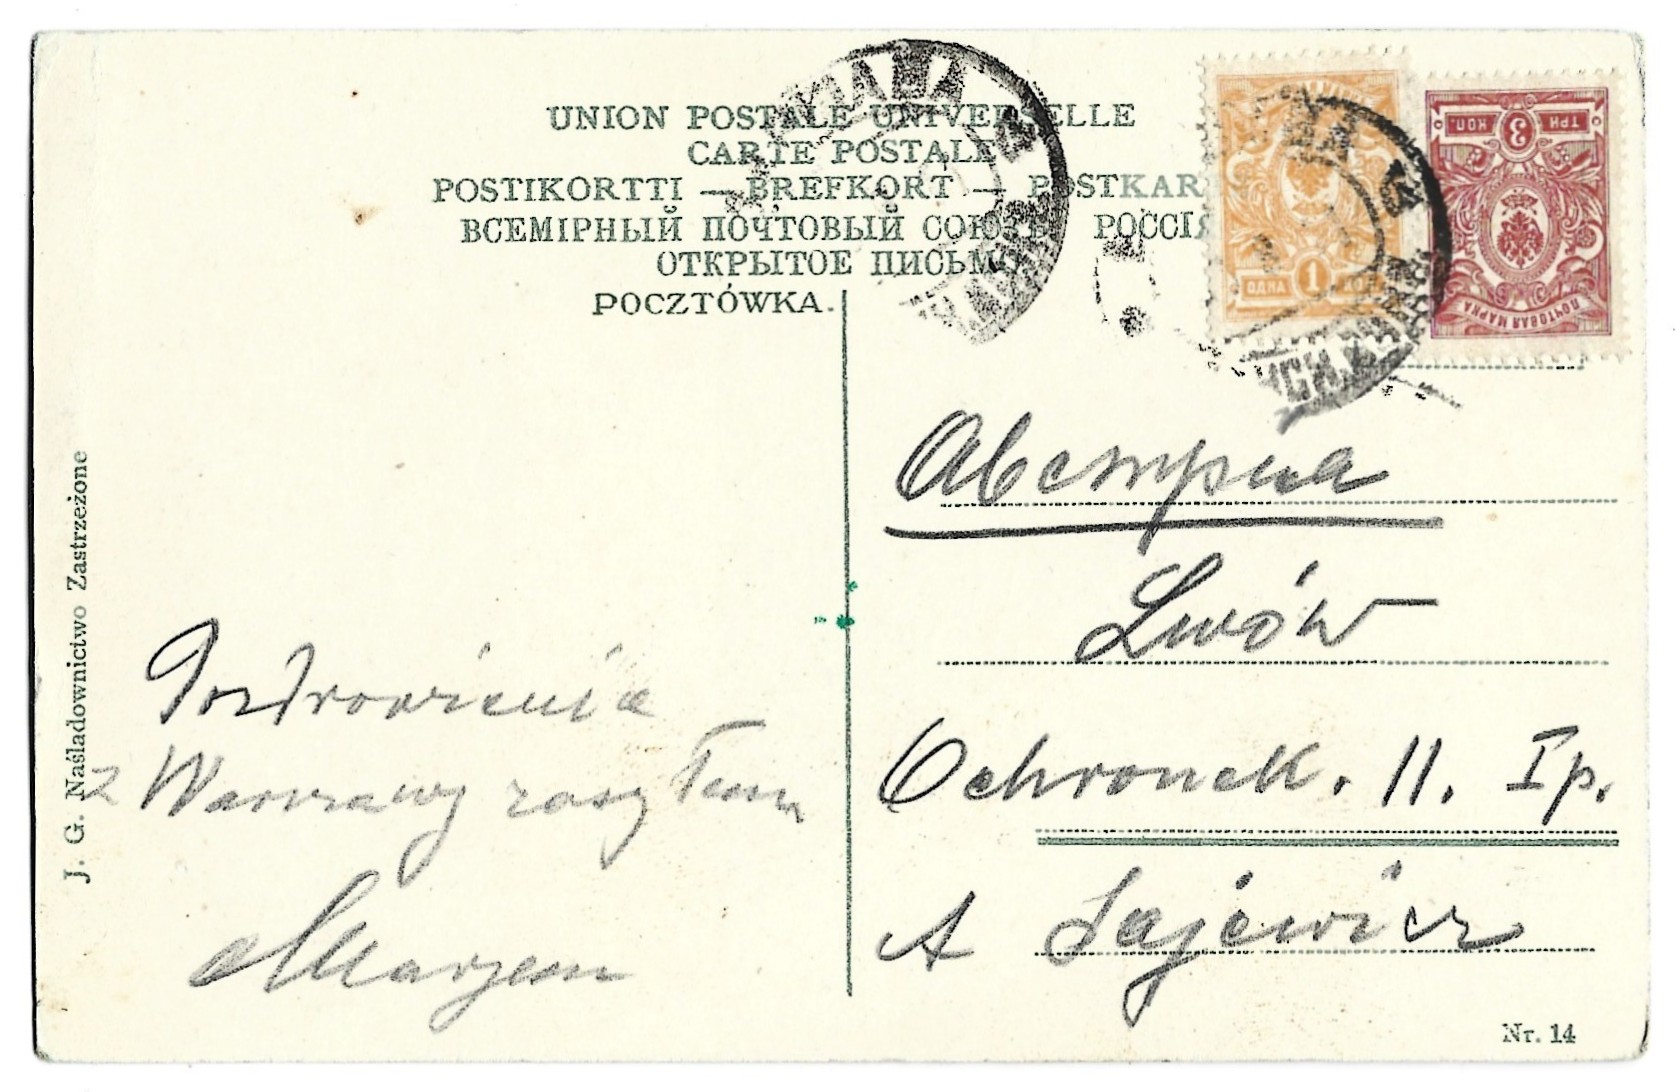 UNION POSTALE UNIVERSELLE
CARTE POSTALE
POSTIKORTTI — BREFKORT — POSTKAR
ВСЕМІРНЫЙ ПОЧТОВЫЙ СОЮЗЪ РОССІЯ
ОТКРЫТОЕ ПИСЬМО
POCZTÓWKA.
1
ОДНА КОП
3
ТРИ КОП.
ПОЧТОВАЯ МАРКА
Австрия
Lwów
Ochronek. 11. I p.
A Sajewicz
Pozdrowienia
z Warszawy
J. G. Naśladownictwo Zastrzeżone
Nr. 14